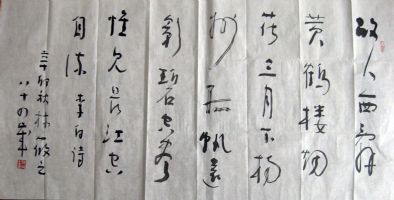 故人西辞
黄鹤楼烟
花三月下扬
州孤帆遠
影碧空尽
惟见长江天
际流 李白诗
辛卯秋林筱之
八十四岁